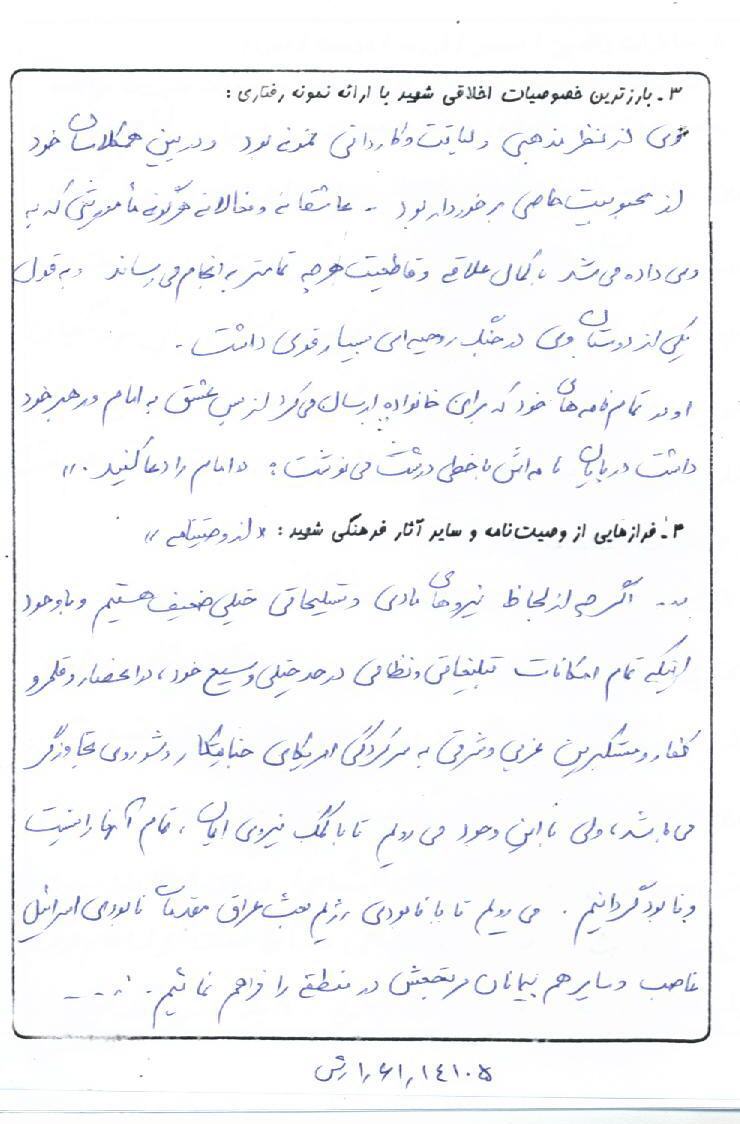 ۳ـ بارزترین خصوصیات اخلاقی شهید با ارائه نمونه رفتاری :
وی از نظر مذهبی و لیاقت و کاردانی نمونه بود و در بین همکلاسان خود
از محبوبیت خاصی برخوردار بود - عاشقانه و فعالانه هرگونه مأموریتی که به
وی داده می شد با کمال علاقه و قاطعیت هر چه تمامتر به انجام می رساند و به قول
یکی از دوستان وی در جنگ روحیه ای بسیار قوی داشت -
او در تمام نامه های خود که برای خانواده ارسال می کرد از بس عشق به امام و رهبر خود
داشت در پایان نامه اش با خطی درشت می نوشت : « امام را دعا کنید . »
۴ـ فرازهایی از وصیت نامه و سایر آثار فرهنگی شهید : « از وصیتنامه »
... اگر چه از لحاظ نیروهای مادی و تسلیحاتی خیلی ضعیف هستیم و با وجود
اینکه تمام امکانات تبلیغاتی و نظامی در حد خیلی وسیع خود ، در اختیار و قلمرو
کفار و مستکبرین غربی و شرقی به سرکردگی امریکای جنایتکار و شوروی تجاوزگر
می باشد ، ولی با این وجود می رویم تا با کمک نیروی ایمان ، تمام آنها را نیست
و نابود گردانیم . می رویم تا با نابودی رژیم بعث عراق مقدمات نابودی اسرائیل
غاصب و سایر هم پیمانان مرتجعش در منطقه را فراهم نمائیم . ....
۱۴۱۰۵ ر ۶۱ ر ارتش